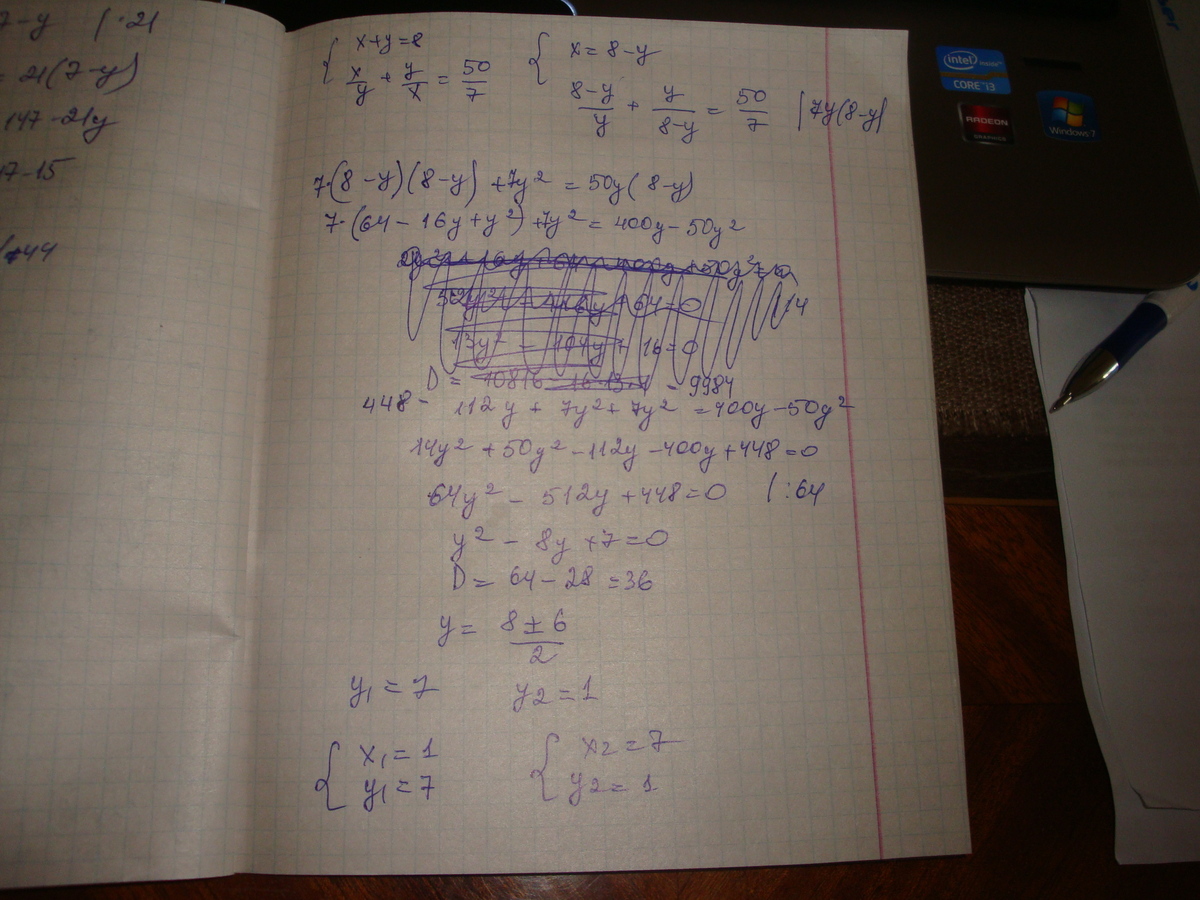 7-y | ·21
= 21(7-y)
147-21y
7-15
{ x+y=8
x/y + y/x = 50/7
{ x=8-y
(8-y)/y + y/(8-y) = 50/7 | 7y(8-y)
7·(8-y)(8-y)+7y² = 50y(8-y)
7·(64-16y+y²)+7y² = 400y-50y²
13y² - 104y + 16=0
448 - 112y + 7y²+7y² = 400y-50y²
14y²+50y²-112y-400y+448=0
64y² - 512y+448=0 | :64
y² - 8y+7=0
D= 64-28=36
y= (8±6)/2
y₁=7 y₂=1
{ x₁=1
y₁=7
{ x₂=7
y₂=1
intel inside
CORE i3
RADEON
GRAPHICS
Windows 7